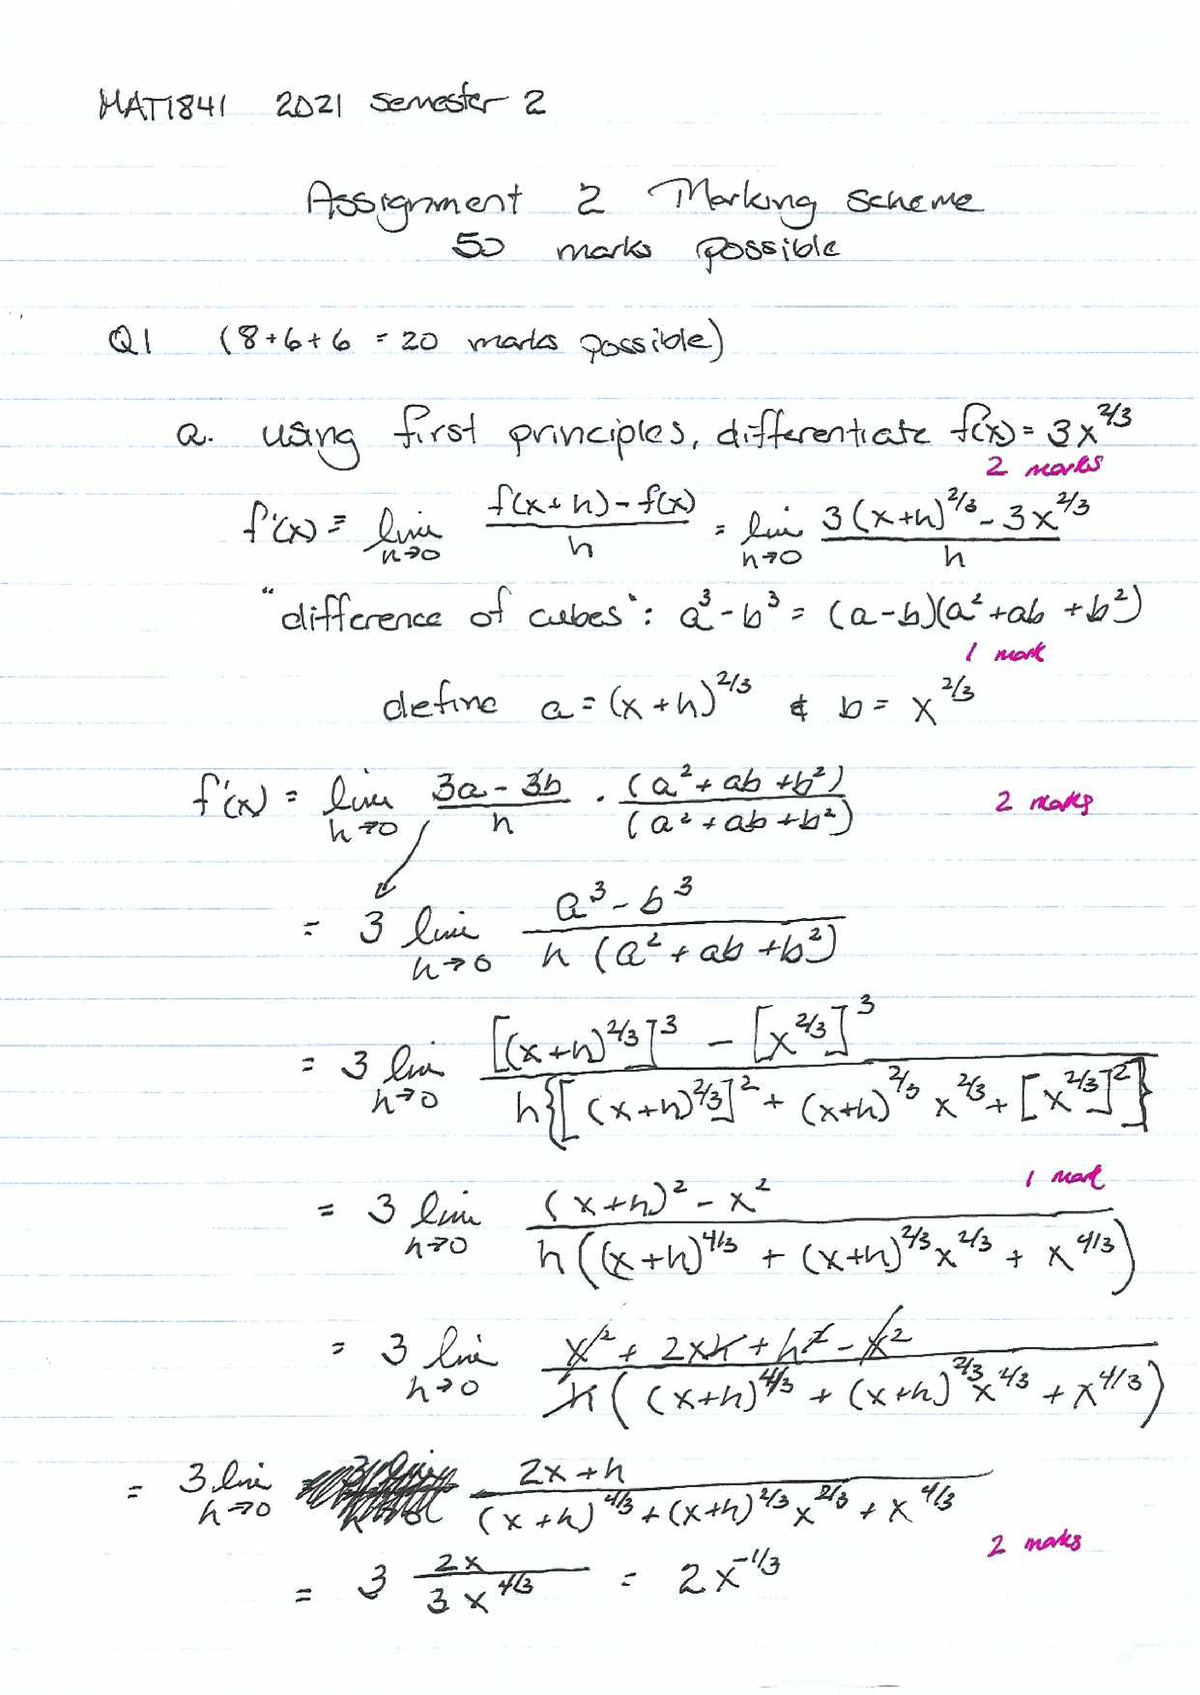 MAT1841 2021 semester 2
Assignment 2 Marking scheme
50 marks possible
Q1 (8+6+6 = 20 marks possible)
a. using first principles, differentiate f(x) = 3x^{2/3}
2 marks
f'(x) = lim_{h→0} \frac{f(x+h) - f(x)}{h} = lim_{h→0} \frac{3(x+h)^{2/3} - 3x^{2/3}}{h}
"difference of cubes": a^3 - b^3 = (a-b)(a^2 + ab + b^2)
1 mark
define a = (x+h)^{2/3} & b = x^{2/3}
f'(x) = lim_{h→0} \frac{3a - 3b}{h} · \frac{(a^2 + ab + b^2)}{(a^2 + ab + b^2)} 2 marks
= 3 lim_{h→0} \frac{a^3 - b^3}{h(a^2 + ab + b^2)}
= 3 lim_{h→0} \frac{[(x+h)^{2/3}]^3 - [x^{2/3}]^3}{h{[(x+h)^{2/3}]^2 + (x+h)^{2/3} x^{2/3} + [x^{2/3}]^2}}
1 mark
= 3 lim_{h→0} \frac{(x+h)^2 - x^2}{h((x+h)^{4/3} + (x+h)^{2/3} x^{2/3} + x^{4/3})}
= 3 lim_{h→0} \frac{x^2 + 2xh + h^2 - x^2}{h((x+h)^{4/3} + (x+h)^{2/3} x^{4/3} + x^{4/3})}
= 3 lim_{h→0} \frac{2x+h}{(x+h)^{4/3} + (x+h)^{2/3} x^{2/3} + x^{4/3}}
2 marks
= 3 \frac{2x}{3x^{4/3}} = 2x^{-1/3}